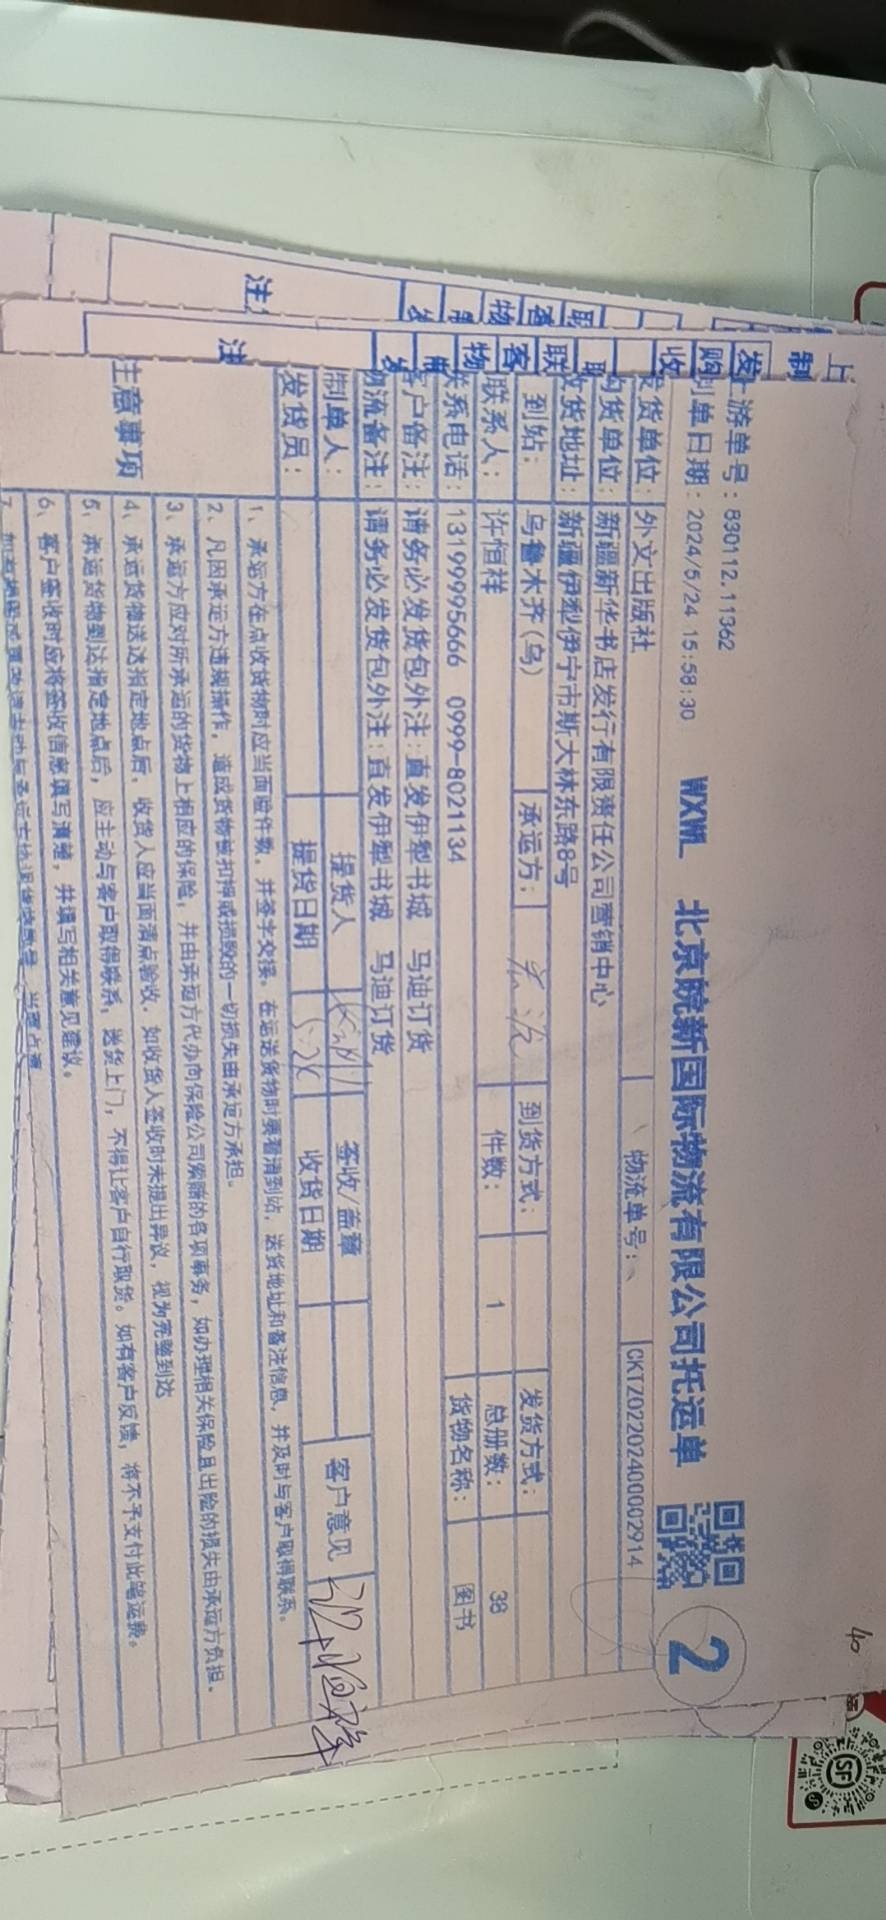 40
上游单号：830112.11362
制单日期：2024/5/24 15:58:30 WXWL 北京皖新国际物流有限公司托运单 2
发货单位：外文出版社 物流单号： CKTZ0220240002914
购货单位：新疆新华书店发行有限责任公司营销中心
收货地址：新疆伊犁伊宁市斯大林东路8号
到站：乌鲁木齐(乌) 承运方： 到货方式： 发货方式：
联系人：许恒祥 件数：1 总册数：38
联系电话：13199995666 0999-8021134 货物名称：图书
客户备注：请务必发货包外注：直发伊犁书城 马迪订货
物流备注：请务必发货包外注：直发伊犁书城 马迪订货
制单人： 提货人 签收/盖章 客户意见
发货员： 提货日期 收货日期
注意事项
1、承运方在点收货物时应当面验件数，并签字交接。在运送货物时要看清到站、送货地址和备注信息，并及时与客户取得联系。
2、凡因承运方违规操作，造成货物被扣押或损毁的一切损失由承运方承担。
3、承运方应对所承运的货物上相应的保险，并由承运方代办向保险公司索赔的各项事务，如办理相关保险且出险的损失由承运方负担。
4、承运货物送达指定地点后，收货人应当面清点验收，如收货人签收时未提出异议，视为完整到达
5、承运货物到达指定地点后，应主动与客户取得联系，送货上门，不得让客户自行取货。如有客户反馈，将不予支付此笔运费。
6、客户签收时应将签收信息填写清楚，并填写相关意见建议。
上
制
发
购
收
联
客
物
注
SF